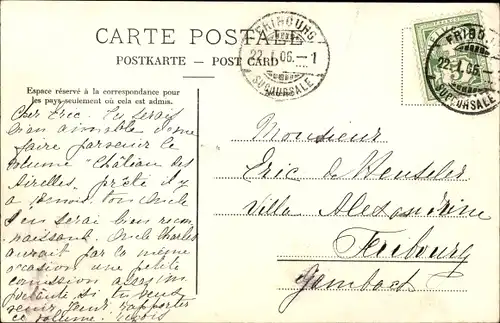 CARTE POSTALE
POSTKARTE — POST CARD
Espace réservé à la correspondance pour
les pays seulement où cela est admis.
FRIBOURG
22.I.06.—1
SUCCURSALE
FRIBOURG
22.I.06.—
SUCCURSALE
Cher Eric. Tu serais
bien aimable de me
faire parvenir le
volume "Château des
Airelles, prêté il y
a
t'en serai bien recon-
naissant. Oncle Charles
aurait par la même
occasion une petite
comission assez im
portante si tu veux
venir
ce volume.
Monsieur
Eric de Weuselee
Villa Alexandrine
Fribourg
Gambach